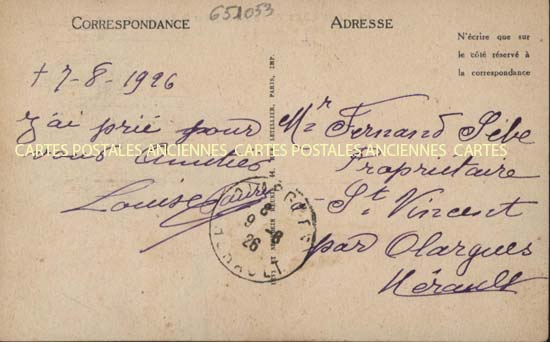 CORRESPONDANCE
651053
ADRESSE
N'écrire que sur
le côté réservé à
la correspondance
+ 7-8-1926
J'ai prié pour
vous Amitiés
Louise
Mr Fernand
Propriétaire
St Vincent
par Olargues
Hérault
CARTES POSTALES ANCIENNES CARTES POSTALES ANCIENNES CARTES
LETELLIER, PARIS, IMP.
9-8
26
HERAULT